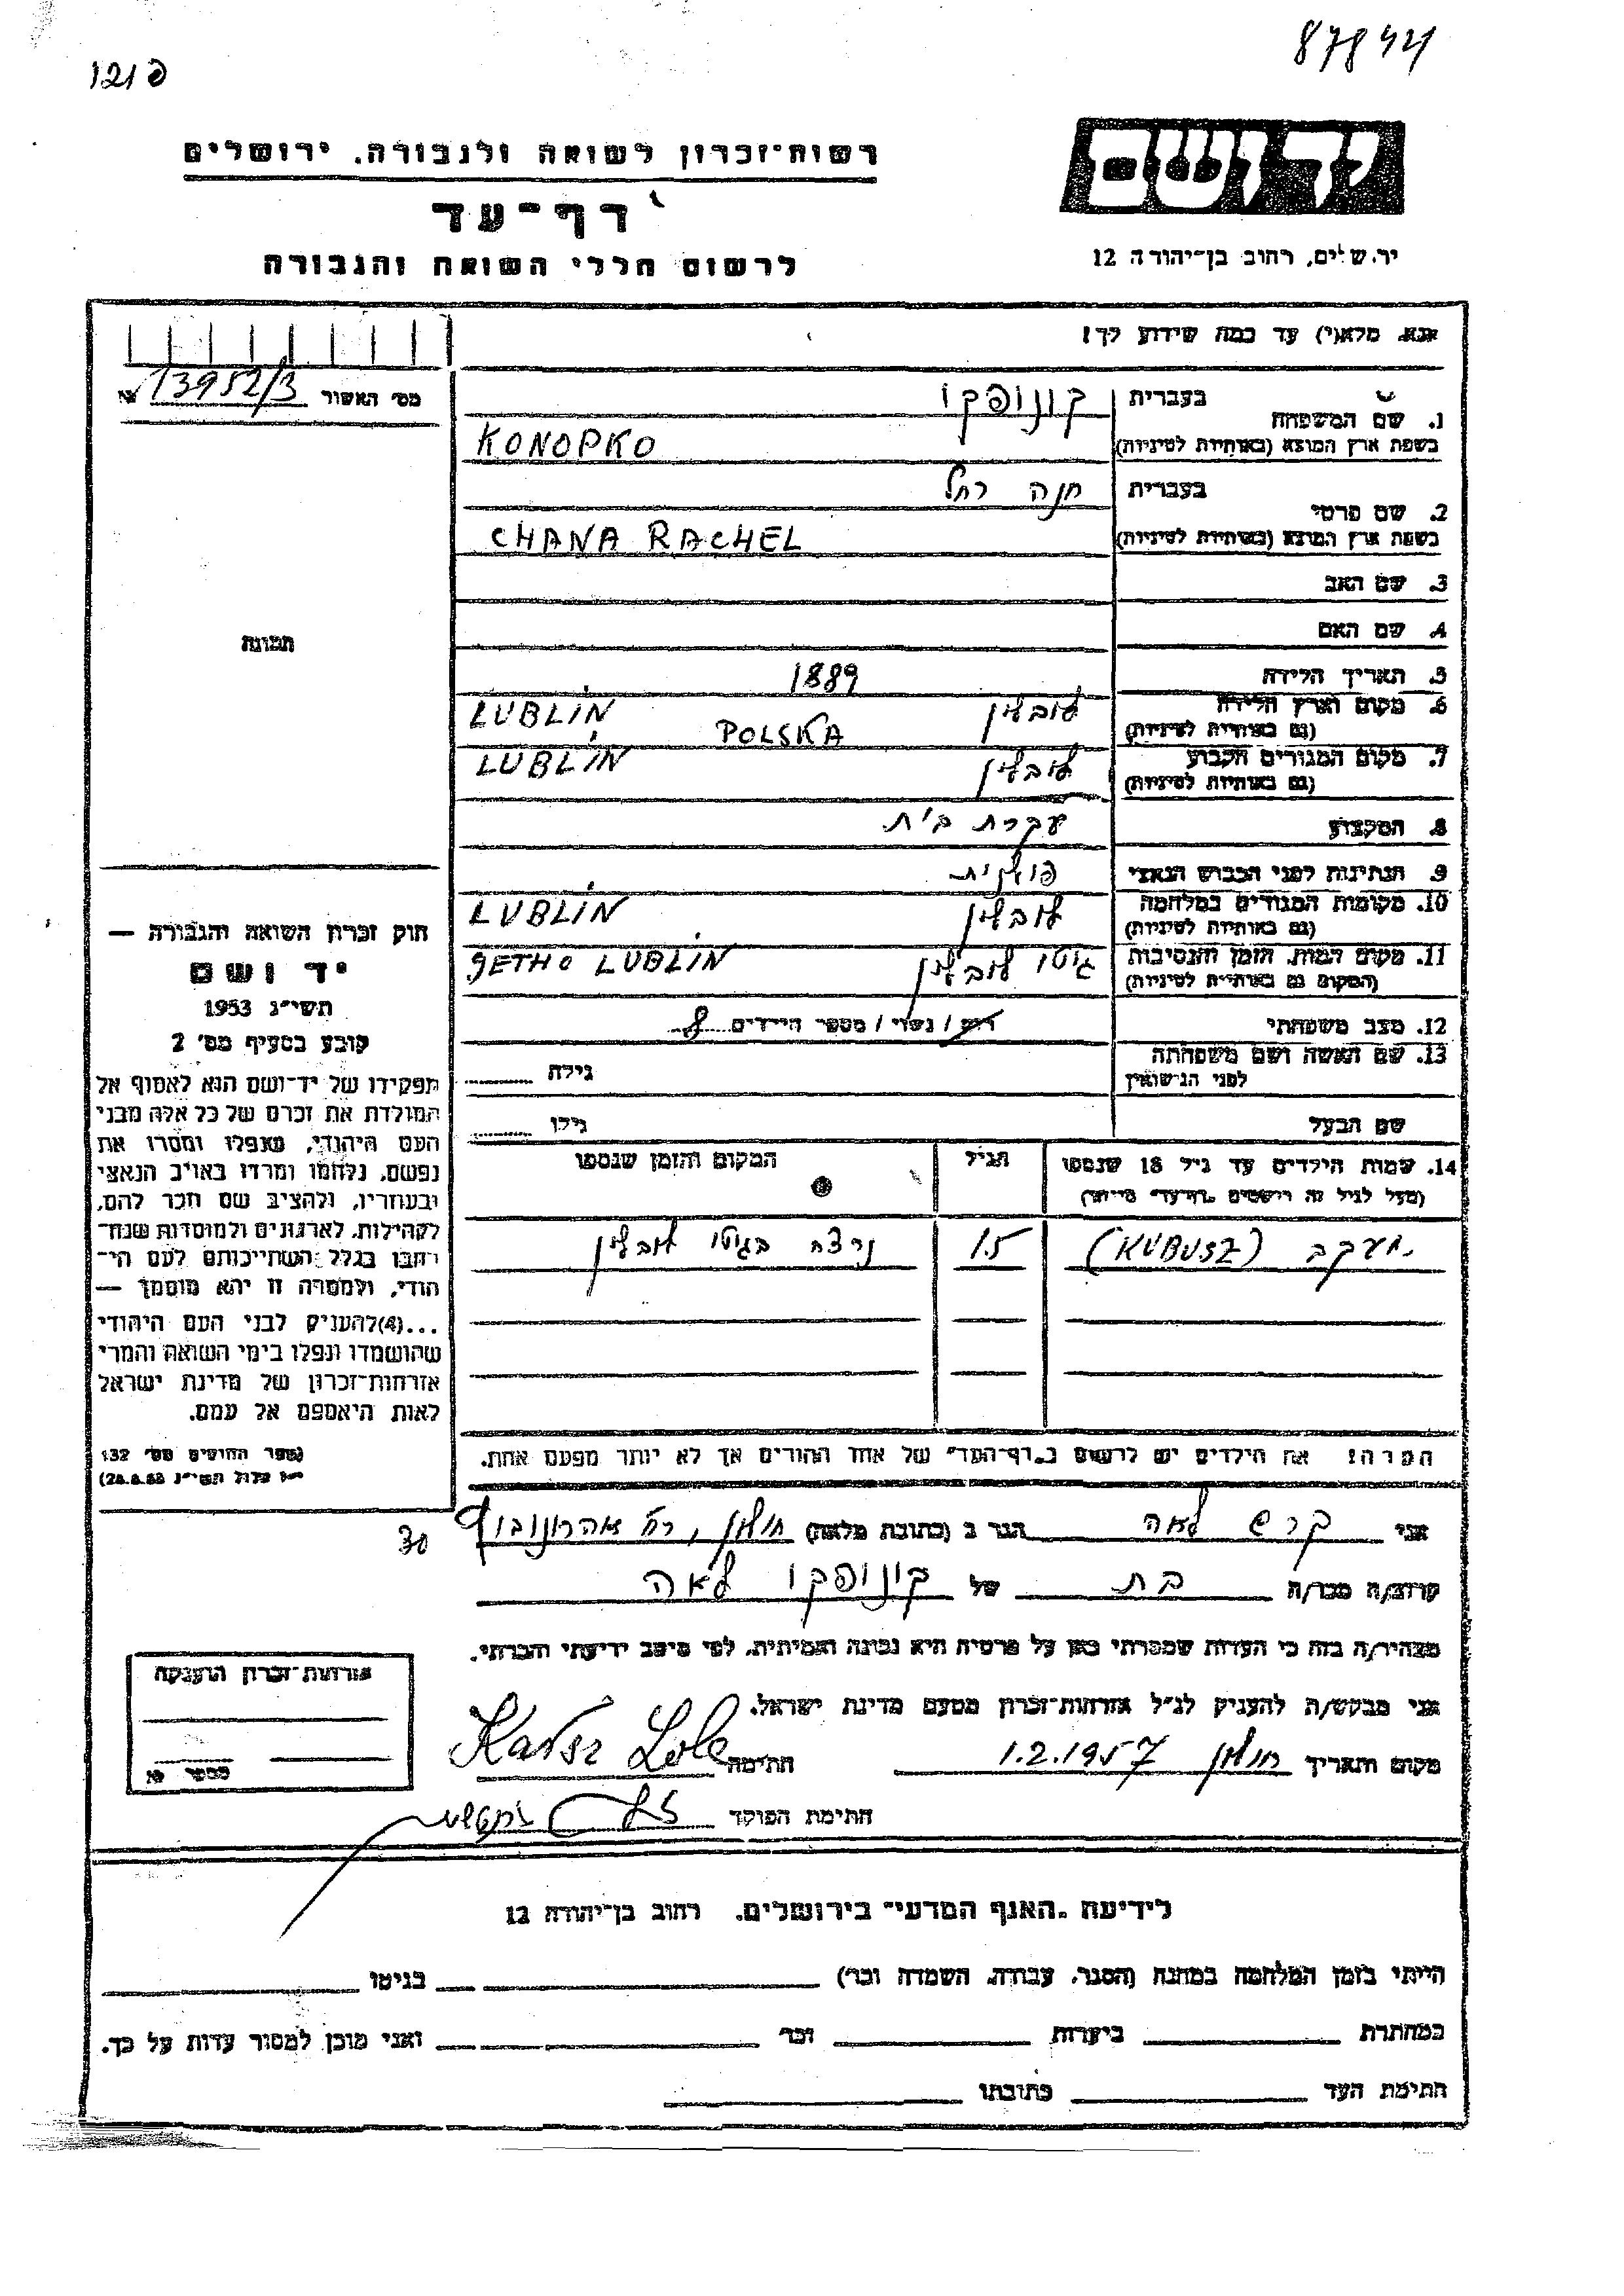 87844
121פ
יד ושם
ירושלים, רחוב בן־יהודה 12
רשות־זכרון לשואה ולגבורה, ירושלים
דף־עד
לרשום חללי השואה והגבורה
אנא, מלא(י) עד כמה שידוע לך!
מס' האשור 13952/3
1. שם המשפחה
בעברית קונופקו
בשפת ארץ המוצא (באותיות לטיניות) KONOPKO
2. שם פרטי
בעברית חנה רחל
בשפת ארץ המוצא (באותיות לטיניות) CHANA RACHEL
3. שם האב
4. שם האם
5. תאריך הלידה 1889
6. מקום וארץ הלידה לובלין LUBLIN
(גם באותיות לטיניות) POLSKA
7. מקום המגורים הקבוע לובלין LUBLIN
(גם באותיות לטיניות)
8. המקצוע עקרת בית
9. הנתינות לפני הכבוש הנאצי פולנית
10. מקומות המגורים במלחמה לובלין LUBLIN
(גם באותיות לטיניות)
11. מקום המות, הזמן והנסיבות גיטו לובלין GETHO LUBLIN
(המקום גם באותיות לטיניות)
12. מצב משפחתי רווק / נשוי / מספר הילדים 8
13. שם האשה ושם משפחתה גילה
לפני הנישואין
שם הבעל גילו
14. שמות הילדים עד גיל 18 שנספו הגיל המקום והזמן שנספו
יעקב (KUBUSZ) 15 נרצח בגיטו לובלין
הערה: את הילדים יש לרשום ב„דף־העד" של אחד ההורים אך לא יותר מפעם אחת.
תמונה
חוק זכרון השואה והגבורה —
יד ושם
תשי"ג 1953
קובע בסעיף מס' 2
תפקידו של יד־ושם הוא לאסוף אל
המולדת את זכרם של כל אלה מבני
העם היהודי, שנפלו ומסרו את
נפשם, נלחמו ומרדו באויב הנאצי
ובעוזריו, ולהציב שם וזכר להם,
לקהילות, לארגונים ולמוסדות שנח־
רבו בגלל השתייכותם לעם הי־
הודי, ולמטרה זו יהא מוסמך —
...(4) להעניק לבני העם היהודי
שהושמדו ונפלו בימי השואה והמרי
אזרחות־זכרון של מדינת ישראל
לאות היאספם אל עמם.
(ספר החוקים מס' 132
אלול תשי"ג 28.8.53)
אני קרש לאה הגר ב (כתובת מלאה) חולון, רח' אהרונוביץ
30
קרוב/ה מכר/ה בת של קונופקו לאה
מצהיר/ה בזה כי העדות שמסרתי כאן על פרטיה היא נכונה ואמיתית, לפי מיטב ידיעתי והכרתי.
אני מבקש/ת להעניק לנ"ל אזרחות־זכרון מטעם מדינת ישראל.
מקום ותאריך חולון 1.2.1957 חתימה Karsz Lole
חתימת הפוקד
אזרחות־זכרון הוענקה
מספר
לידיעת „האגף המדעי" בירושלים, רחוב בן־יהודה 12
הייתי בזמן המלחמה במחנה (הסגר, עבודה, השמדה וכו') בגיטו
במחתרת ביערות וכו' ואני מוכן למסור עדות על כך.
חתימת העד כתובתו